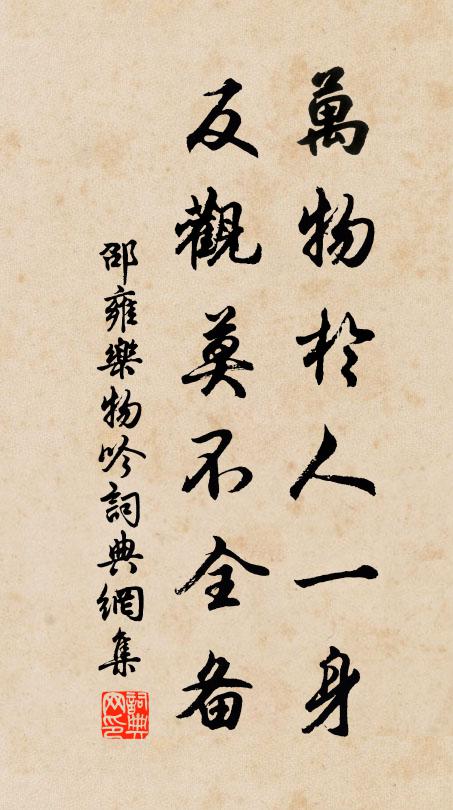 萬物於人一身
反觀莫不全备
邵雍樂物吟詞典網集
詞典网印